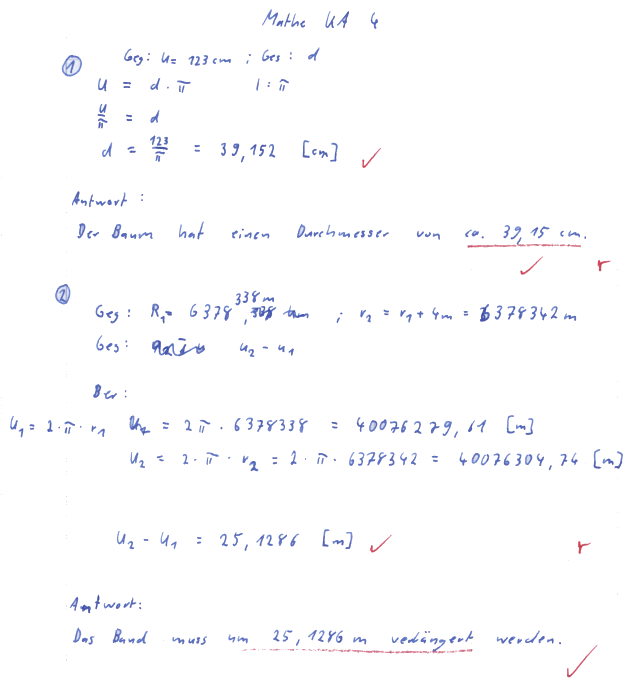 Mathe KA 4
① Geg: U = 123 cm ; Ges: d
U = d · π | : π
U/π = d
d = 123/π = 39,152 [cm] ✓
Antwort:
Der Baum hat einen Durchmesser von ca. 39,15 cm.
✓ r
② Geg: R₁ = 6378 338 m ; r₂ = r₁ + 4m = 6378342 m
Ges: u₂ - u₁
Ber:
U₁ = 2 · π · r₁ U₁ = 2π · 6378338 = 40076279,61 [m]
U₂ = 2 · π · r₂ = 2 · π · 6378342 = 40076304,74 [m]
U₂ - U₁ = 25,1286 [m] ✓ r
Antwort:
Das Band muss um 25,1286 m verlängert werden.
✓